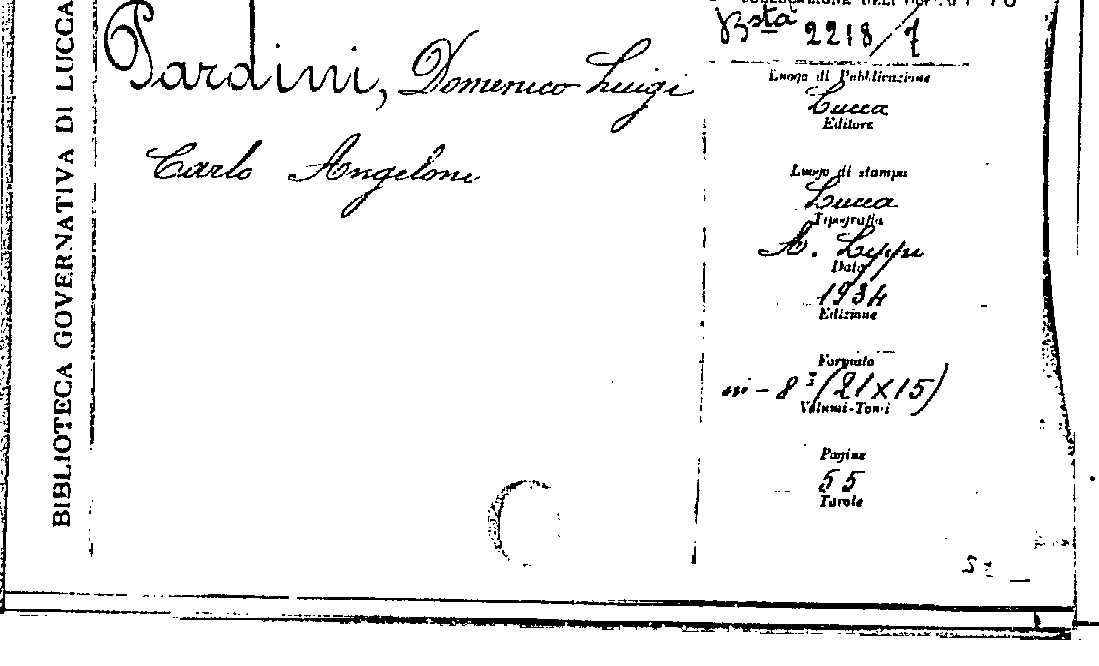 BIBLIOTECA GOVERNATIVA DI LUCCA
Pardini, Domenico Luigi
Carlo Angeloni
Bsta 2218/7
Luogo di Pubblicazione
Lucca
Editore
Luogo di stampa
Lucca
Tipografia
A. Lippi
Data
1934
Edizione
Formato
in-8º (21X15)
Volumi-Tomi
Pagine
55
Tavole